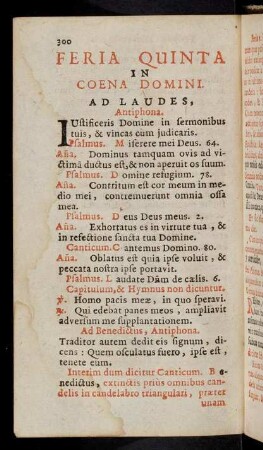 300
FERIA QUINTA
IN
COENA DOMINI.
AD LAUDES,
Antiphona.
IUstificeris Domine in sermonibus
tuis, & vincas cùm judicaris.
Psalmus. M iserere mei Deus. 64.
Aña. Dominus tamquam ovis ad vi-
ctimâ ductus est, & non aperuit os suum.
Psalmus. D omine refugium. 78.
Aña. Contritum est cor meum in me-
dio mei, contremuerunt omnia ossa
mea.
Psalmus. D eus Deus meus. 2.
Aña. Exhortatus es in virtute tua, &
in refectione sancta tua Domine.
Canticum. C antemus Domino. 80.
Aña. Oblatus est quia ipse voluit, &
peccata nostra ipse portavit.
Psalmus. L audate Dñm de cælis. 6.
Capitulum, & Hymnus non dicuntur.
℣. Homo pacis meæ, in quo speravi.
℟. Qui edebat panes meos, ampliavit
adversum me supplantationem.
Ad Benedictus, Antiphona.
Traditor autem dedit eis signum, di-
cens : Quem osculatus fuero, ipse est,
tenete eum.
Interim dum dicitur Canticum. B e-
nedictus, extinctis priùs omnibus can-
delis in candelabro triangulari, præter
unam